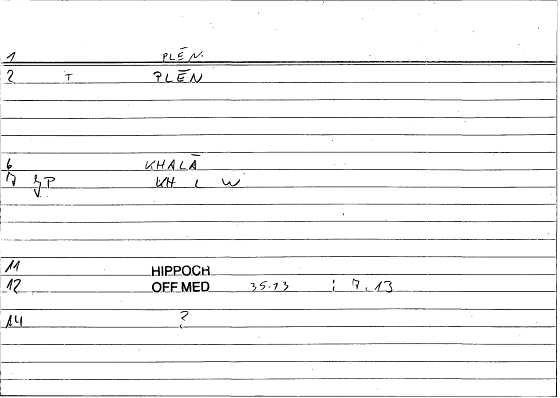 1 PLĒN.
2 T PLĒN
6 KHALĀ
7 ȜP KH L W
11 HIPPOCR
12 OFF.MED 35.13 : 7.13
14 ?